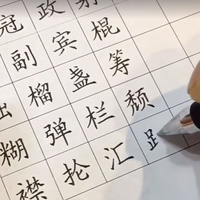 冠政
副宾棍
榴盏筹
糊弹栏颓
襟抡汇